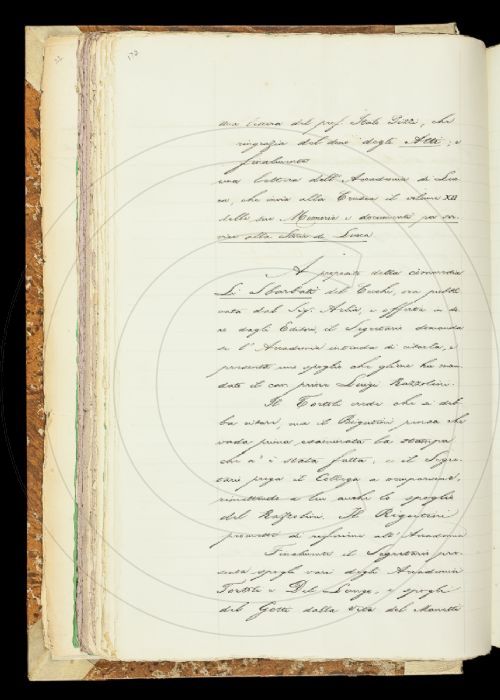 172
una lettera del prof. Italo Pizzi, che
ringrazia del dono degli Atti; e
finalmente
una lettera dell'Accademia di Luc
ca, che invia alla Crusca il volume XII
delle sue Memorie e documenti per ser
vire alla Storia di Lucca.
A proposito della commedia
Li Sbarbati del Cecchi, ora pubbli
cata dal Sig. Arlìa, e offerta in do
no dagli Editori, il Segretario domanda
se l'Accademia intenda di citarla, e
presenta uno spoglio che gliene ha man
dato il cor. Luigi Razzolini.
Il Tortoli crede che si deb
ba citare, ma il Rigutini pensa che
vada prima esaminata la stampa
che n'è stata fatta; e il Segre-
tario prega il Collega a occuparsene,
rimettendo a lui anche lo spoglio
del Razzolini. Il Rigutini
promette di referirne all'Accademia
Finalmente il Segretario pre-
senta spogli vari degli Accademici
Tortoli e Del Lungo, e spogli
del Gotti dalla Vita del Manetti